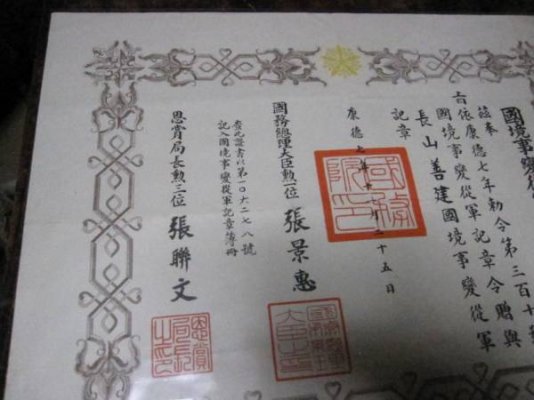 國境事變從
茲奉
旨依康德七年勅令第三百十
國境事變從軍記章令贈與
長山善建國境事變從軍
記章
康德七年
月二十五日
國務院印
國務總理大臣勲一位 張景惠
查此證書以第一〇六二七八號
記入國境事變從軍記章簿冊
恩賞局長勲三位 張聯文
恩賞局長之印